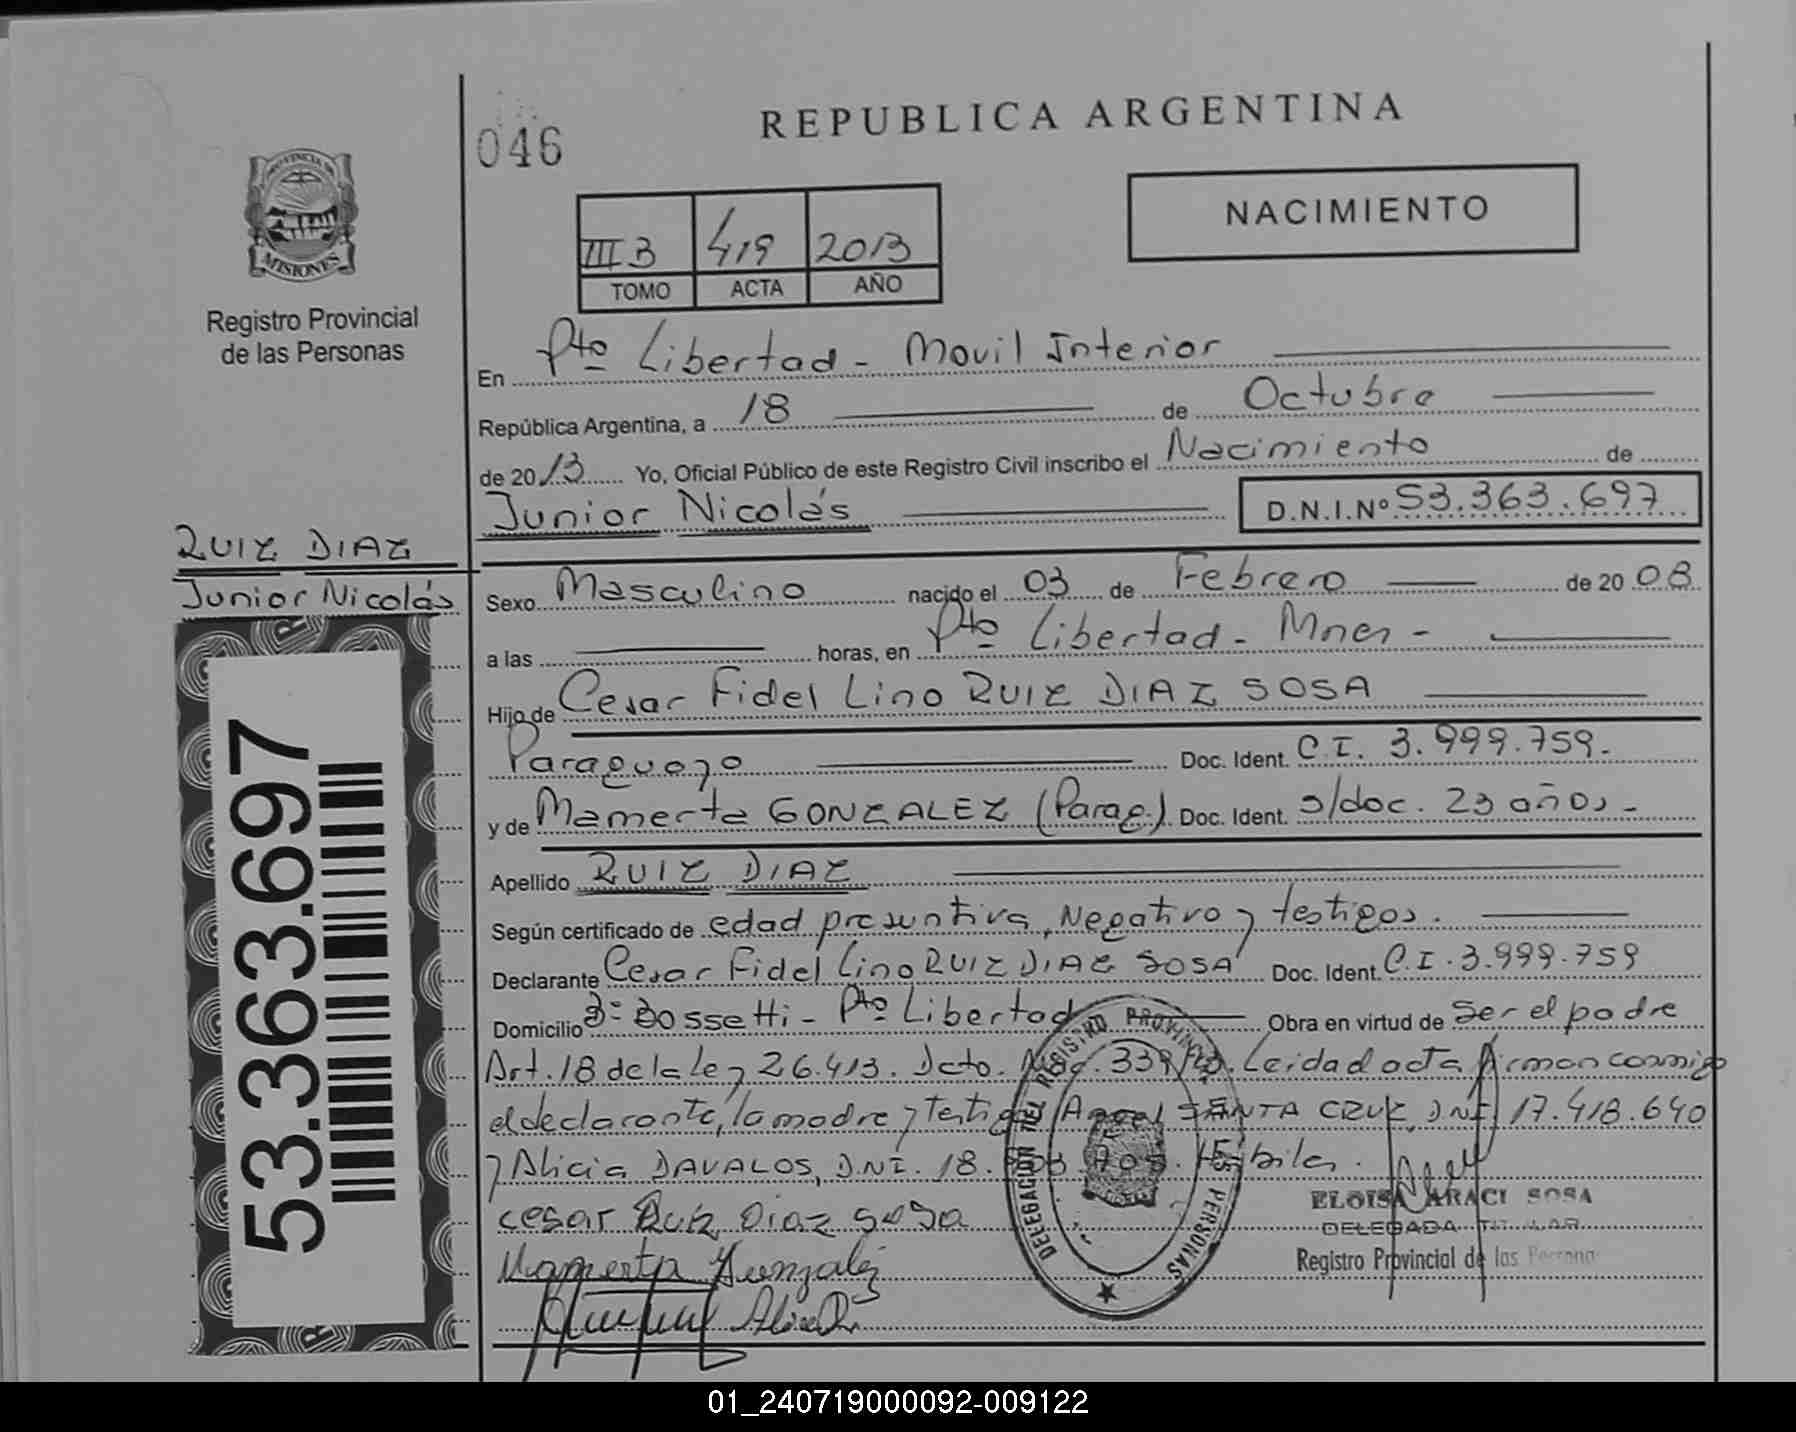 046
REPUBLICA ARGENTINA
NACIMIENTO
III B 419 2013
TOMO ACTA AÑO
PROVINCIA DE
MISIONES
Registro Provincial
de las Personas
En Pto Libertad - Movil Interior
República Argentina, a 18 de Octubre
de 2013 Yo, Oficial Público de este Registro Civil inscribo el Nacimiento de
Junior Nicolás D.N.I.Nº 53.363.697
RUIZ DIAZ
Junior Nicolás
Sexo Masculino nacido el 03 de Febrero de 2008
a las horas, en Pto Libertad - Mnes -
Hijo de Cesar Fidel Lino RUIZ DIAZ SOSA
Paraguayo Doc. Ident. C.I. 3.999.759.
y de Mamerta GONZALEZ (Parag.) Doc. Ident. s/doc. 23 años -
Apellido RUIZ DIAZ
Según certificado de edad presuntiva, Negativo y testigos.
Declarante Cesar Fidel Lino RUIZ DIAZ SOSA Doc. Ident. C.I. 3.999.759
Domicilio Bº Bossetti - Pto Libertad Obra en virtud de ser el padre
Art. 18 de la Ley 26.413. Dcto. 339/13. Leida el acta firman conmigo
el declarante, la madre y testigos Angel SANTA CRUZ, DNI 17.418.640
y Alicia DAVALOS, D.N.I. 18. Hábiles.
cesar Ruiz Diaz sosa
Mamerta Gonzalez
DELEGACION DEL REGISTRO PROVINCIAL PERSONAS
ELOISA ARACI SOSA
DELEGADA TITULAR
Registro Provincial de las Personas
53.363.697
01_240719000092-009122